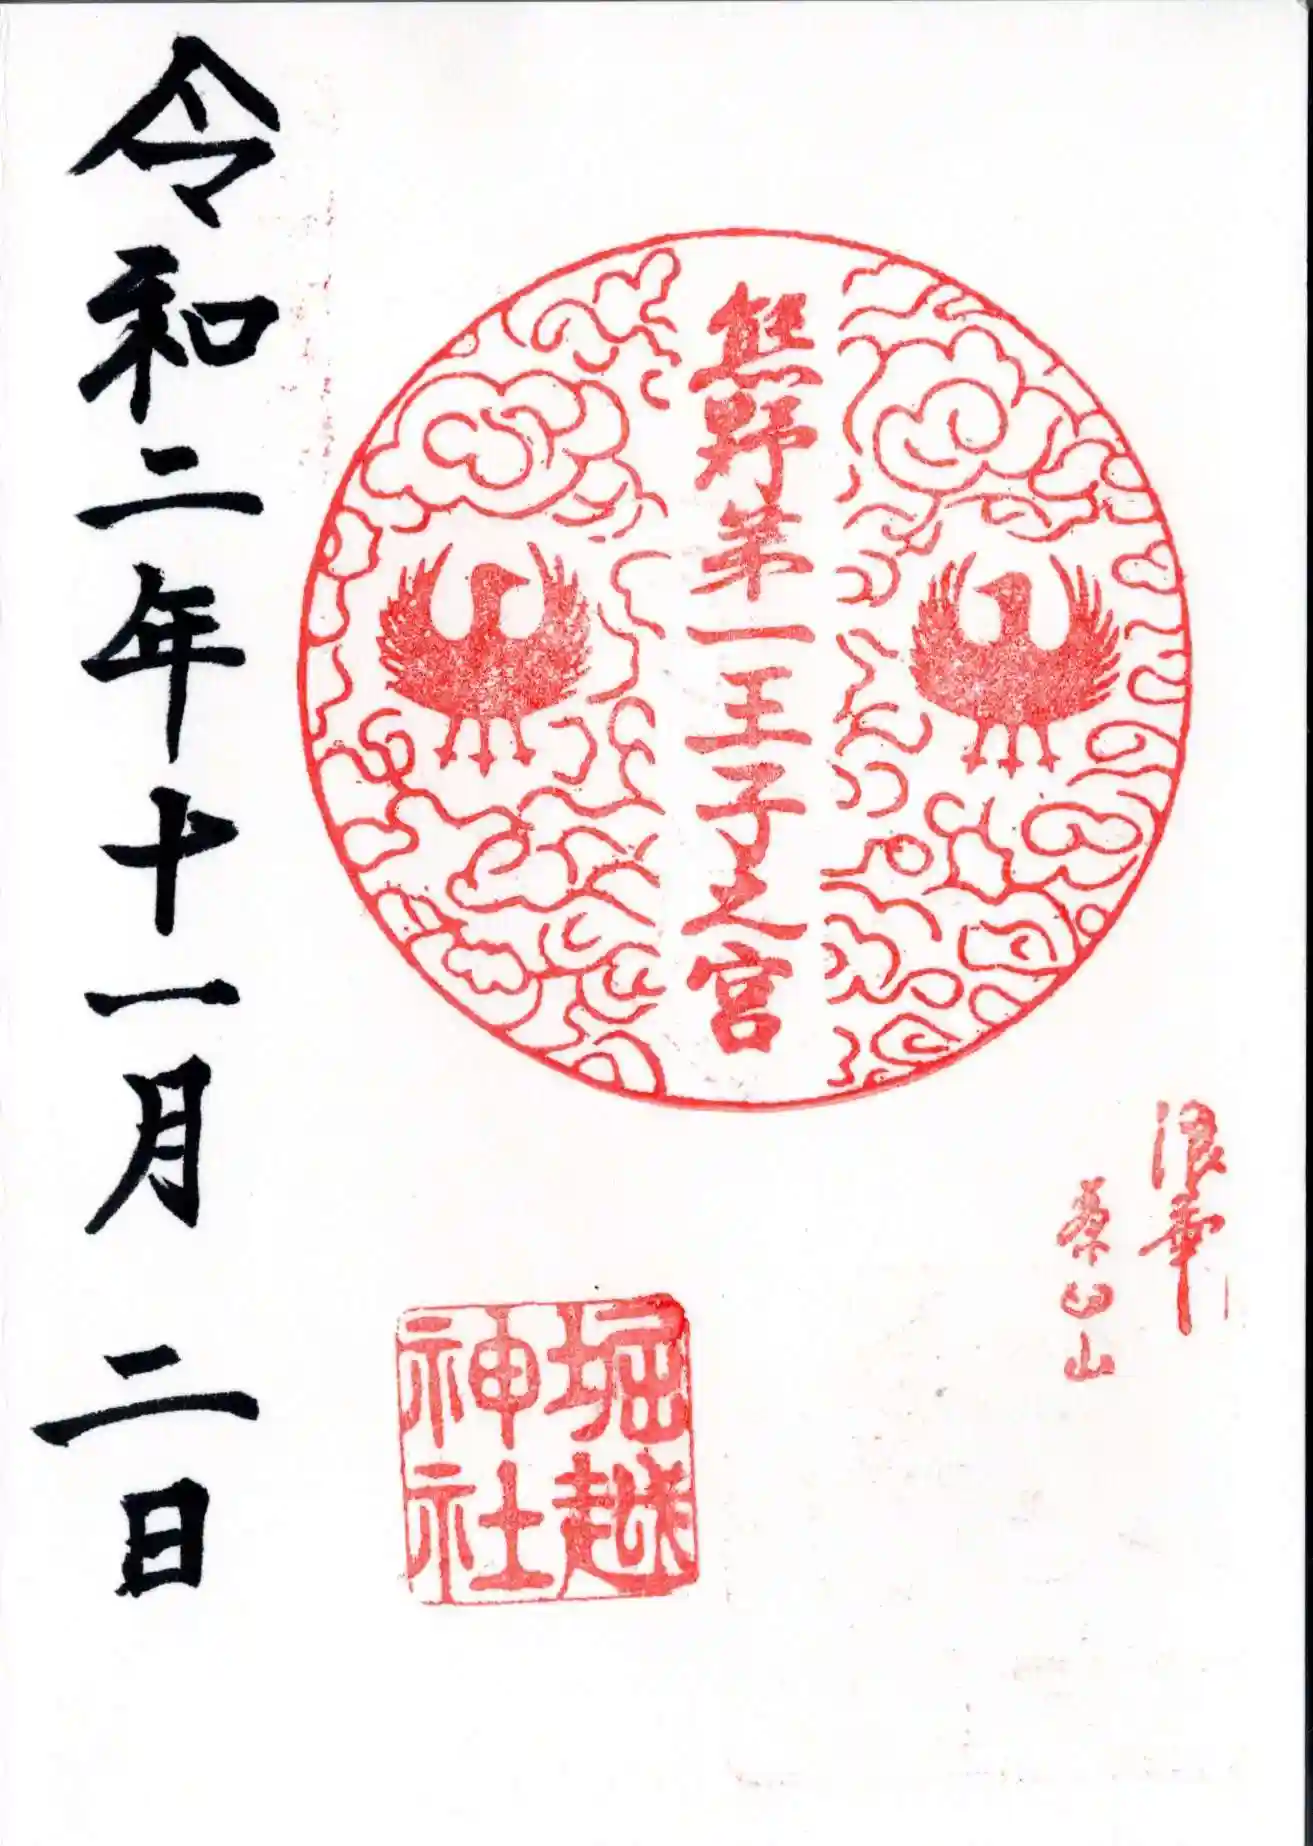 浪華
茶臼山
熊野第一王子之宮
堀越
神社
令和二年十一月二日